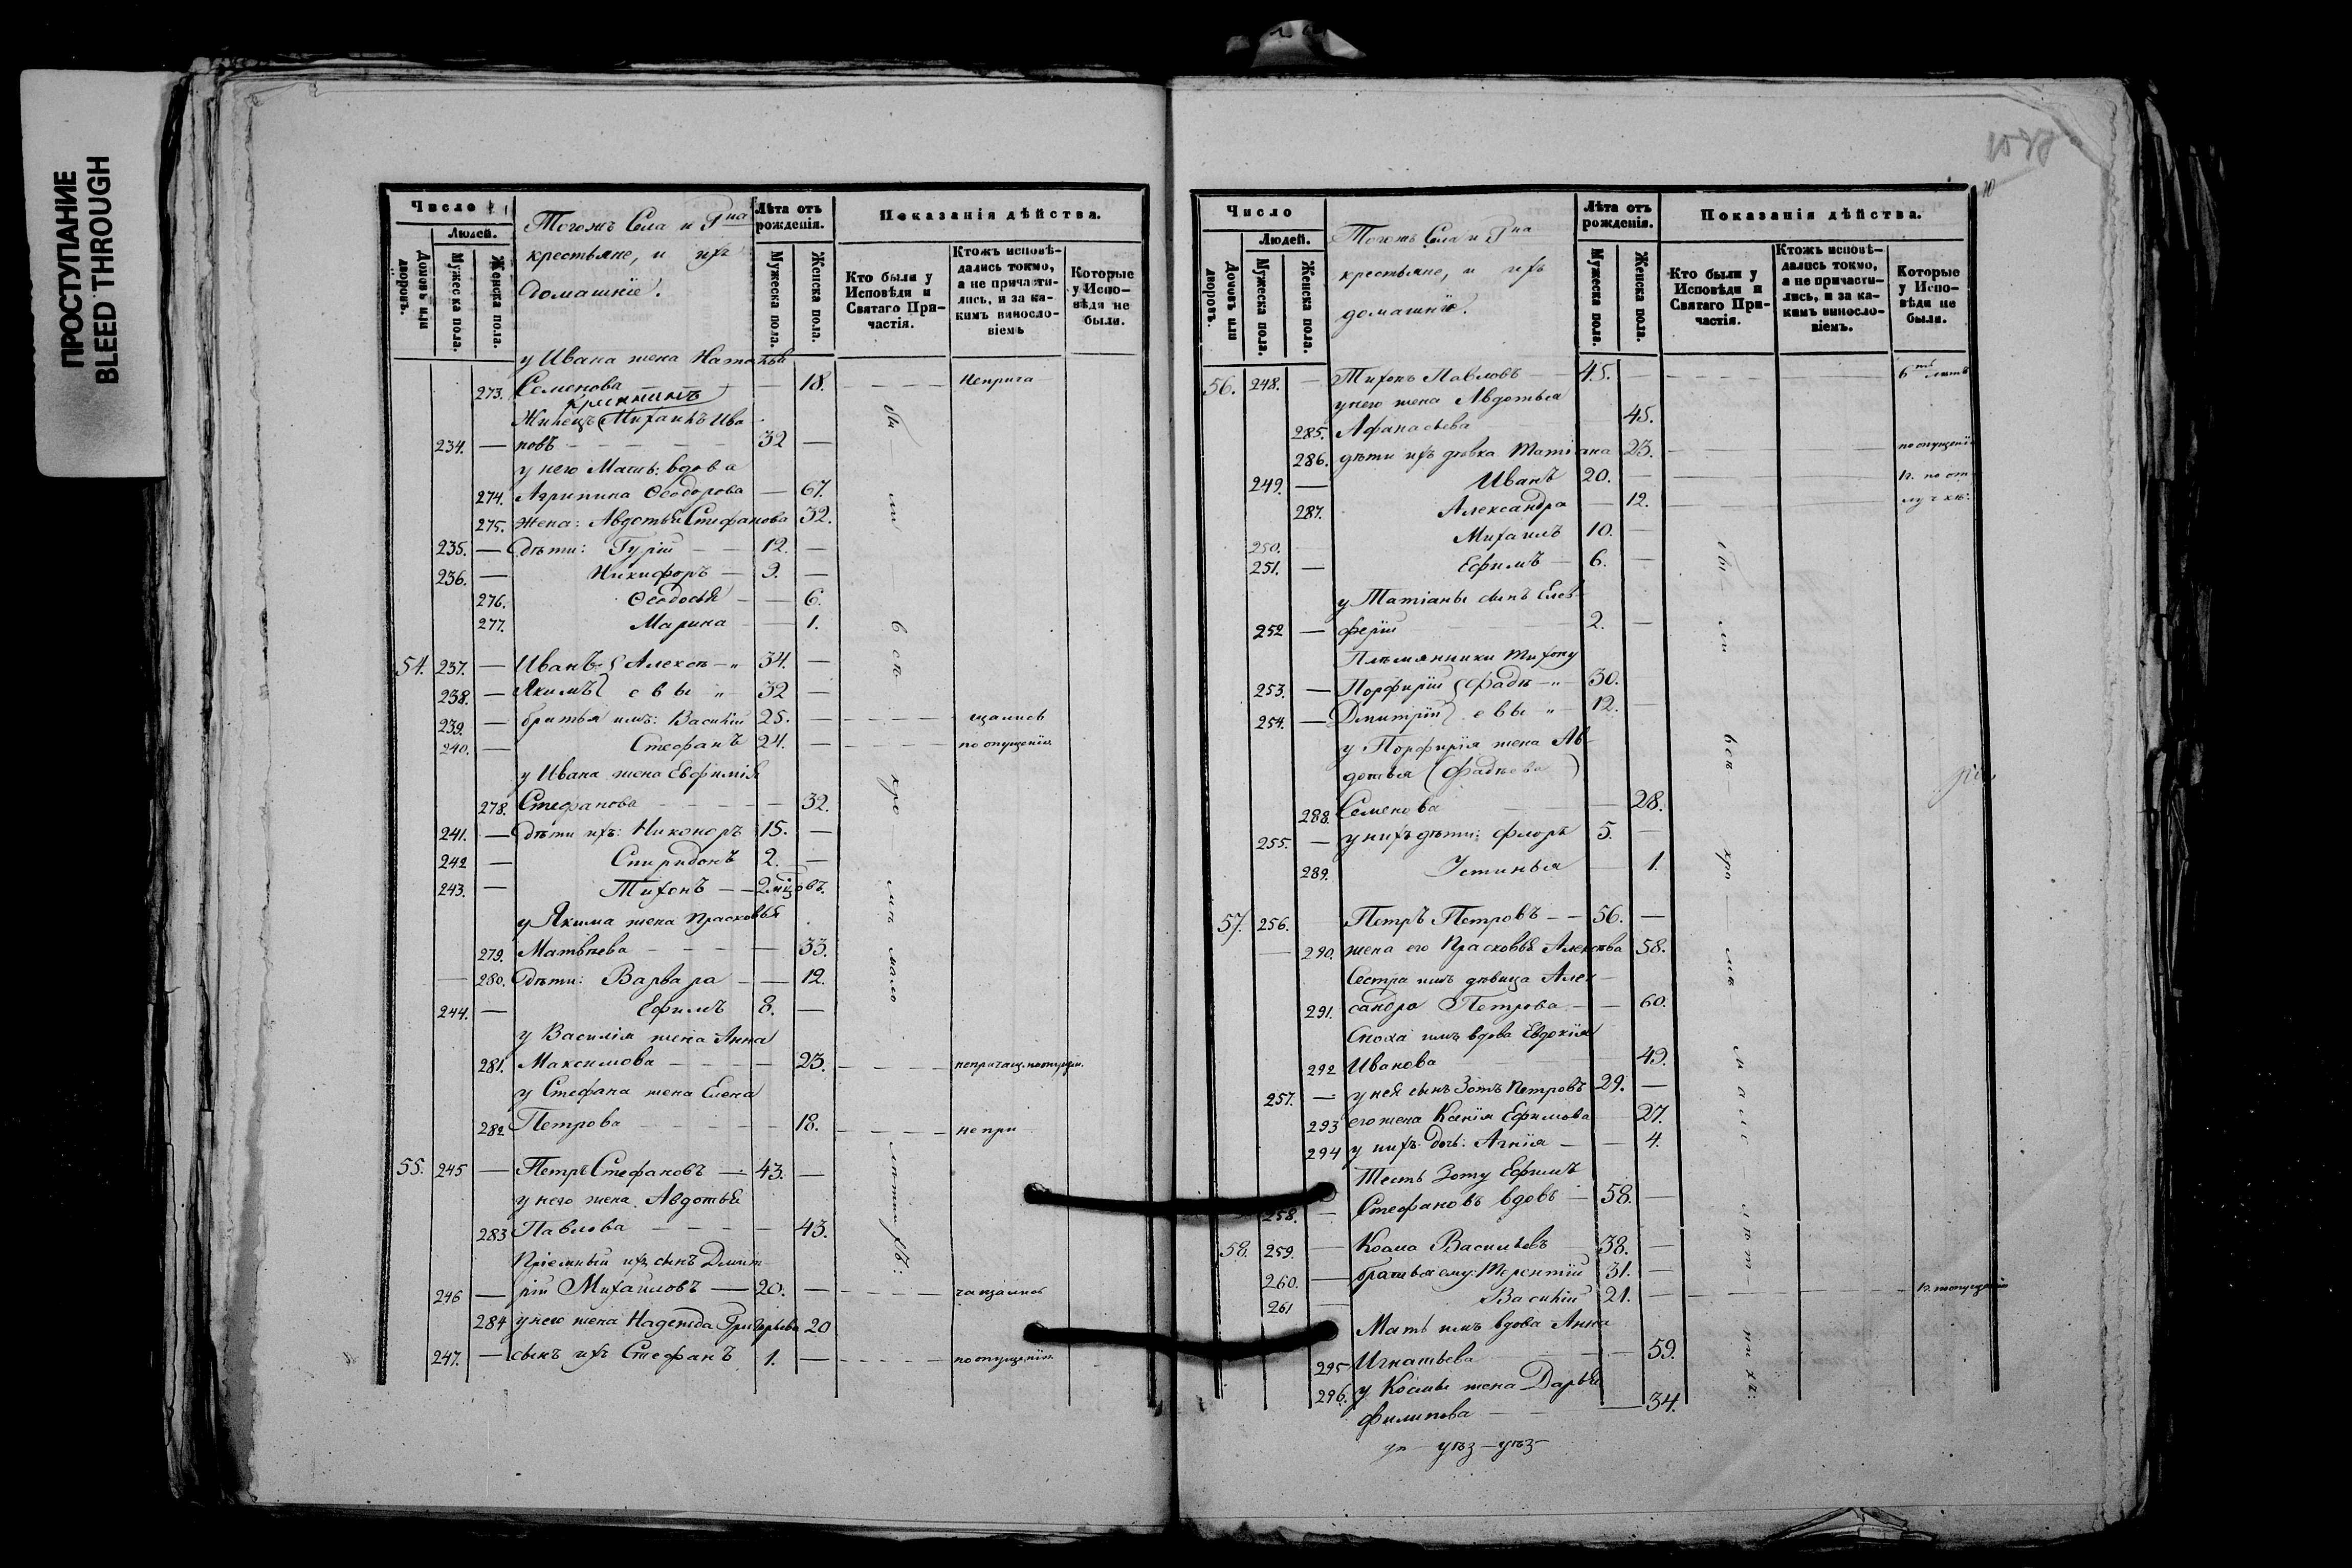 ПРОСТУПАНИЕ
BLEED THROUGH
Число
Людей.
Домовъ или дворовъ.
Мужеска пола.
Женска пола.
Тогожъ Села и Гна
крестьяне, и ихъ
домашніе.
Лѣта отъ рожденія.
Мужеска пола.
Женска пола.
Показанія дѣйства.
Кто были у Исповѣди и Святаго Причастія.
Ктожъ исповѣдались токмо, а не причастились, и за какимъ винословіемъ
Которые у Исповѣди не были.
у Ивана жена Наталья
273. Семенова — 18. Неприча
Жилецъ Михаилъ Ива
234. — новъ 32 —
у него Мать: вдова
274. Агрипина Ѳеодорова — 67.
275. Жена: Авдотья Стефанова 32.
235. — дѣти: Гурій — 12. —
236. — Никифоръ — 9. —
276. Ѳеодосья — 6.
277. Марина — 1.
54. 237. — Иванъ Алексѣ- " 34. —
238. — Якимъ евы " 32 —
239. — братья имъ: Василій 25. — щались
240. — Стефанъ 24. — по опущенію
у Ивана жена Евфимія
278. Стефанова — 32.
241. — дѣти ихъ: Никоноръ 15. —
242 — Спиридонъ 2. —
243. — Тихонъ — 2 мѣцовъ.
у Якима жена Прасковья
279. Матвѣева — 33.
— 280. дѣти: Варвара — 12.
244. — Ефимъ 8. —
у Василія жена Анна
281. Максимова — 23.
у Стефана жена Елена
282 Петрова — 18. не при
55. 245 — Петръ Стефановъ — 43. —
у него жена Авдотья
283 Павлова — 43.
Пріемный ихъ сынъ Дмит
246 — рій Михаиловъ — 20. — чащались
284 у него жена Надежда Григорьева 20
247. — сынъ ихъ Стефанъ 1. — по опущенію
Число
Людей.
Домовъ или дворовъ.
Мужеска пола.
Женска пола.
Тогожъ Села и Гна
крестьяне, и ихъ
домашніе.
Лѣта отъ рожденія.
Мужеска пола.
Женска пола.
Показанія дѣйства.
Кто были у Исповѣди и Святаго Причастія.
Ктожъ исповѣдались токмо, а не причастились, и за какимъ винословіемъ.
Которые у Исповѣди не были.
56. 248. — Тихонъ Павловъ — 45. —
у него жена Авдотья
285. Афанасьева 45.
286. дѣти ихъ дѣвка Татіана 23. по опущенію
249. — Иванъ 20. — н. по от
287. Александра — 12. — лучкѣ.
250. Михаилъ 10. —
251. — Ефимъ — 6. —
у Татіаны сынъ Елев-
252 — ферій 2. —
Племянники Тихону
253. — Порфирій Фадѣ- " 30.
254. — Дмитрій евы " 12. —
у Порфирія жена Ав-
дотья (Фадѣева)
288. Семенова — 28.
255. — у нихъ дѣти: Флоръ 5. —
289. Устинья — 1.
57. 256. Петръ Петровъ — 56. —
— 290. жена его Прасковья Алексѣева 58.
Сестра имъ дѣвица Алек-
291. сандра Петрова — 60.
Сноха имъ вдова Евдокія
292 Иванова 49.
257. — у нея сынъ Зотъ Петровъ 29. —
293 его жена Ксенія Ефимова 27.
294 у нихъ дочь: Агнія — 4.
Тесть Зоту Ефимъ
258. — Стефановъ вдовъ — 58. —
58. 259. — Косма Васильевъ 38. —
260. — братья ему: Терентій 31. —
261 — Василій 21. —
Мать имъ вдова Анна
295 Игнатьева — 59.
296. у Космы жена Дарья
Филипова — 34.